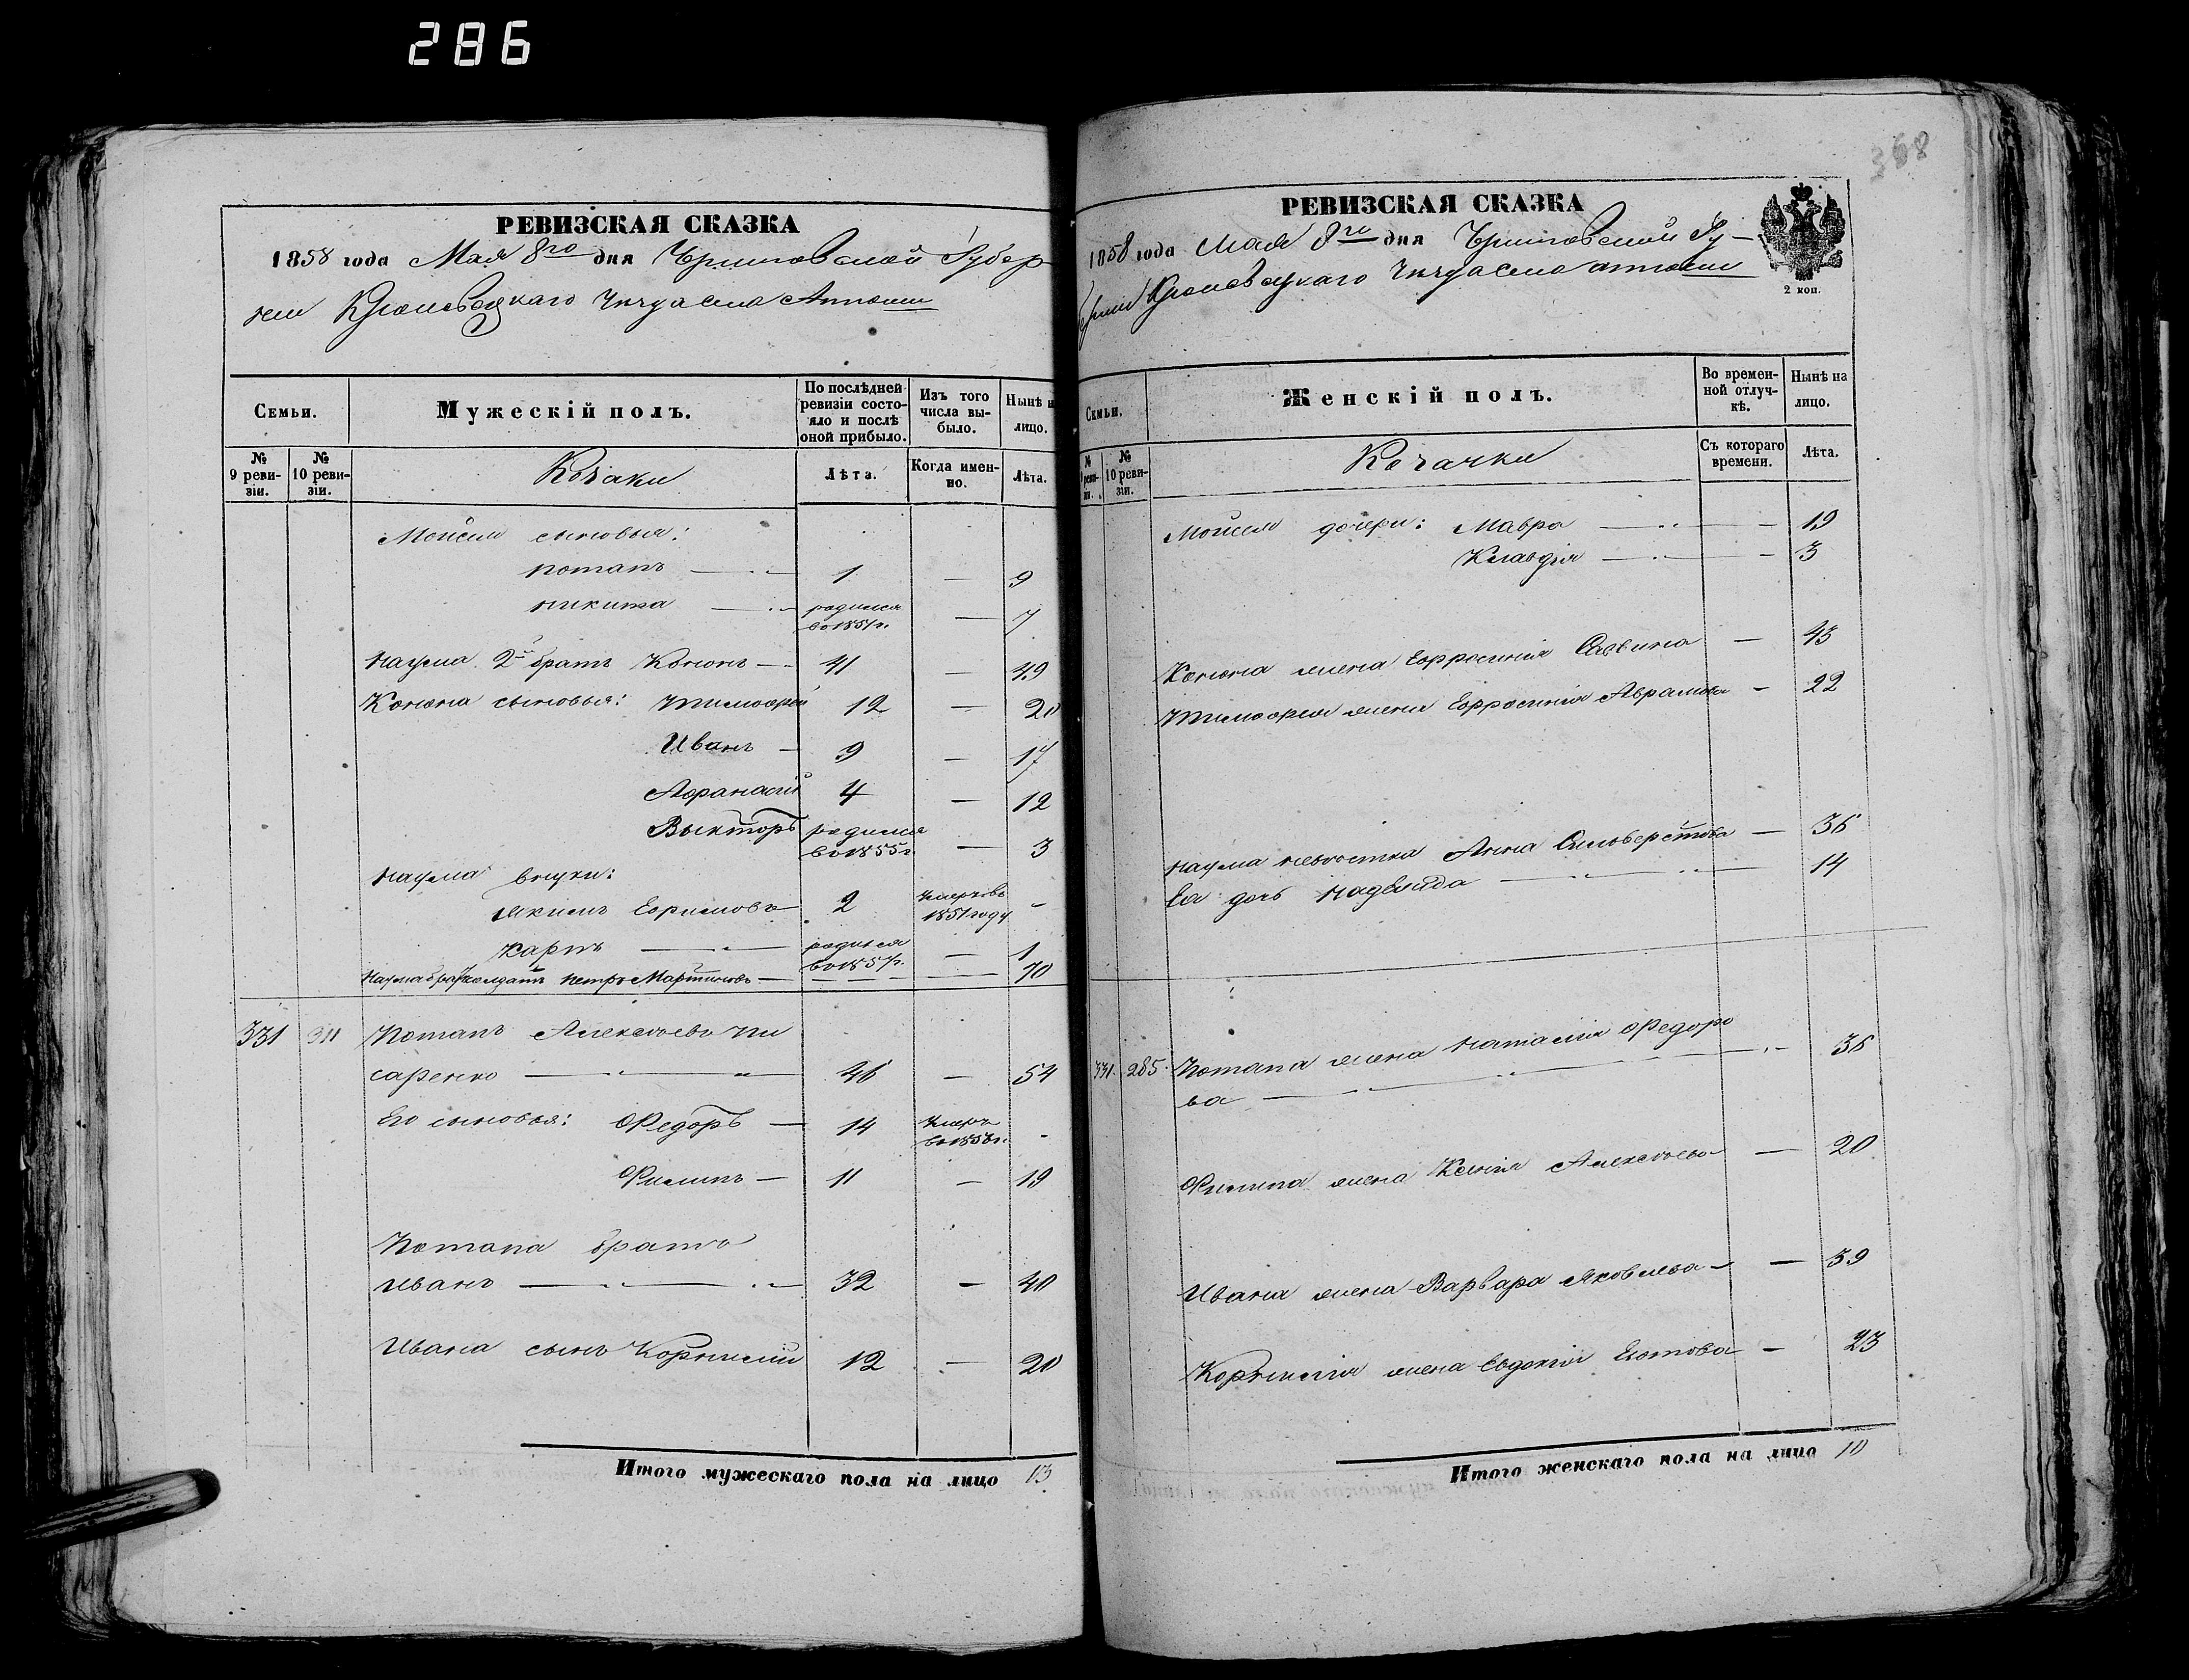 286
368
РЕВИЗСКАЯ СКАЗКА
1858 года Мая 8го дня Черниговской Губер
нии Кролевецкаго Уезда села
Семьи.
Мужескій полъ.
По послѣдней ревизіи состояло и послѣ оной прибыло.
Изъ того числа выбыло.
Нынѣ н лицо.
№ 9 ревизіи.
№ 10 ревизіи.
Козаки
Лѣта.
Когда именно.
Лѣта.
Мойсея сыновья:
Потапъ — 1 — 9
Никита — родился во 1851г. — 7
Наума 2й братъ Кононъ — 41 — 49
Конона сыновья: Тимофей 12 — 20
Иванъ — 9 — 17
Афанасій 4 — 12
Выкторъ родился во 1855г. — 3
Наума внуки:
Якимъ Ефимовъ 2 умерь во 1851 году -
Карпъ — родился во 1857г. — 1
Наума братъ солдатъ Петръ Мартиновъ — 70
331 311 Потапъ Алексѣевъ Пи
саренко — 46 — 54
Его сыновья: Федоръ — 14 умеръ во 1853г. -
Филипъ — 11 — 19
Потапа братъ
Иванъ — 32 — 40
Ивана сынъ Корнилій 12 — 20
Итого мужескаго пола на лицо 13
РЕВИЗСКАЯ СКАЗКА
1858 года Мая 8го дня Черниговской Гу-
берніи Кролевецкаго Уезда села
2 коп.
Семьи.
Женскій полъ.
Во временной отлучкѣ.
Нынѣ на лицо.
№ 9 ревизіи.
№ 10 ревизіи.
Козачки
Съ котораго времени.
Лѣта.
Мойсея дочери: Мавра — 19
Клавдія — 3
Конона жена Ефросинія Саввина — 43
Тимофея жена Ефросинія Аврамова — 22
Наума невѣстка Анна Сильверстова — 36
Ея дочь Надежда — 14
331. 285. Потапа жена Наталія Федоро
ва — 36
Филипа жена Ксенія Алексѣева — 20
Ивана жена Варвара Яковлева — 39
Корнилія жена Евдокія — 23
Итого женскаго пола на лицо 10